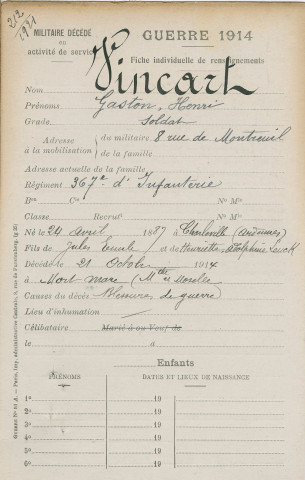 212
1921
MILITAIRE DÉCÉDÉ
en
activité de service
GUERRE 1914
Fiche individuelle de renseignements
Nom Vincart
Prénoms Gaston, Henri
Grade Soldat
Adresse à la mobilisation
du militaire 8 rue de Montreuil
de la famille
Adresse actuelle de la famille
Régiment 367e d'Infanterie
Bon Cie No Mle
Classe Recrut No Mle
Né le 24 avril 1887 à Charleville (Ardennes)
Fils de Jules Emile et de Henriette Adolphine
Décédé le 21 Octobre 1914
à Mort mare (Mthe et Moselle
Causes du décès Blessures de guerre)
Lieu d'inhumation
Célibataire Marié à ou Veuf de
le à
Enfants
PRÉNOMS DATES ET LIEUX DE NAISSANCE
1o 19
2o 19
3o 19
4o 19
5o 19
6o 19
Guerre No 91 A. — Paris, Imp. administrative Centrale, 8, rue de Furstenberg.